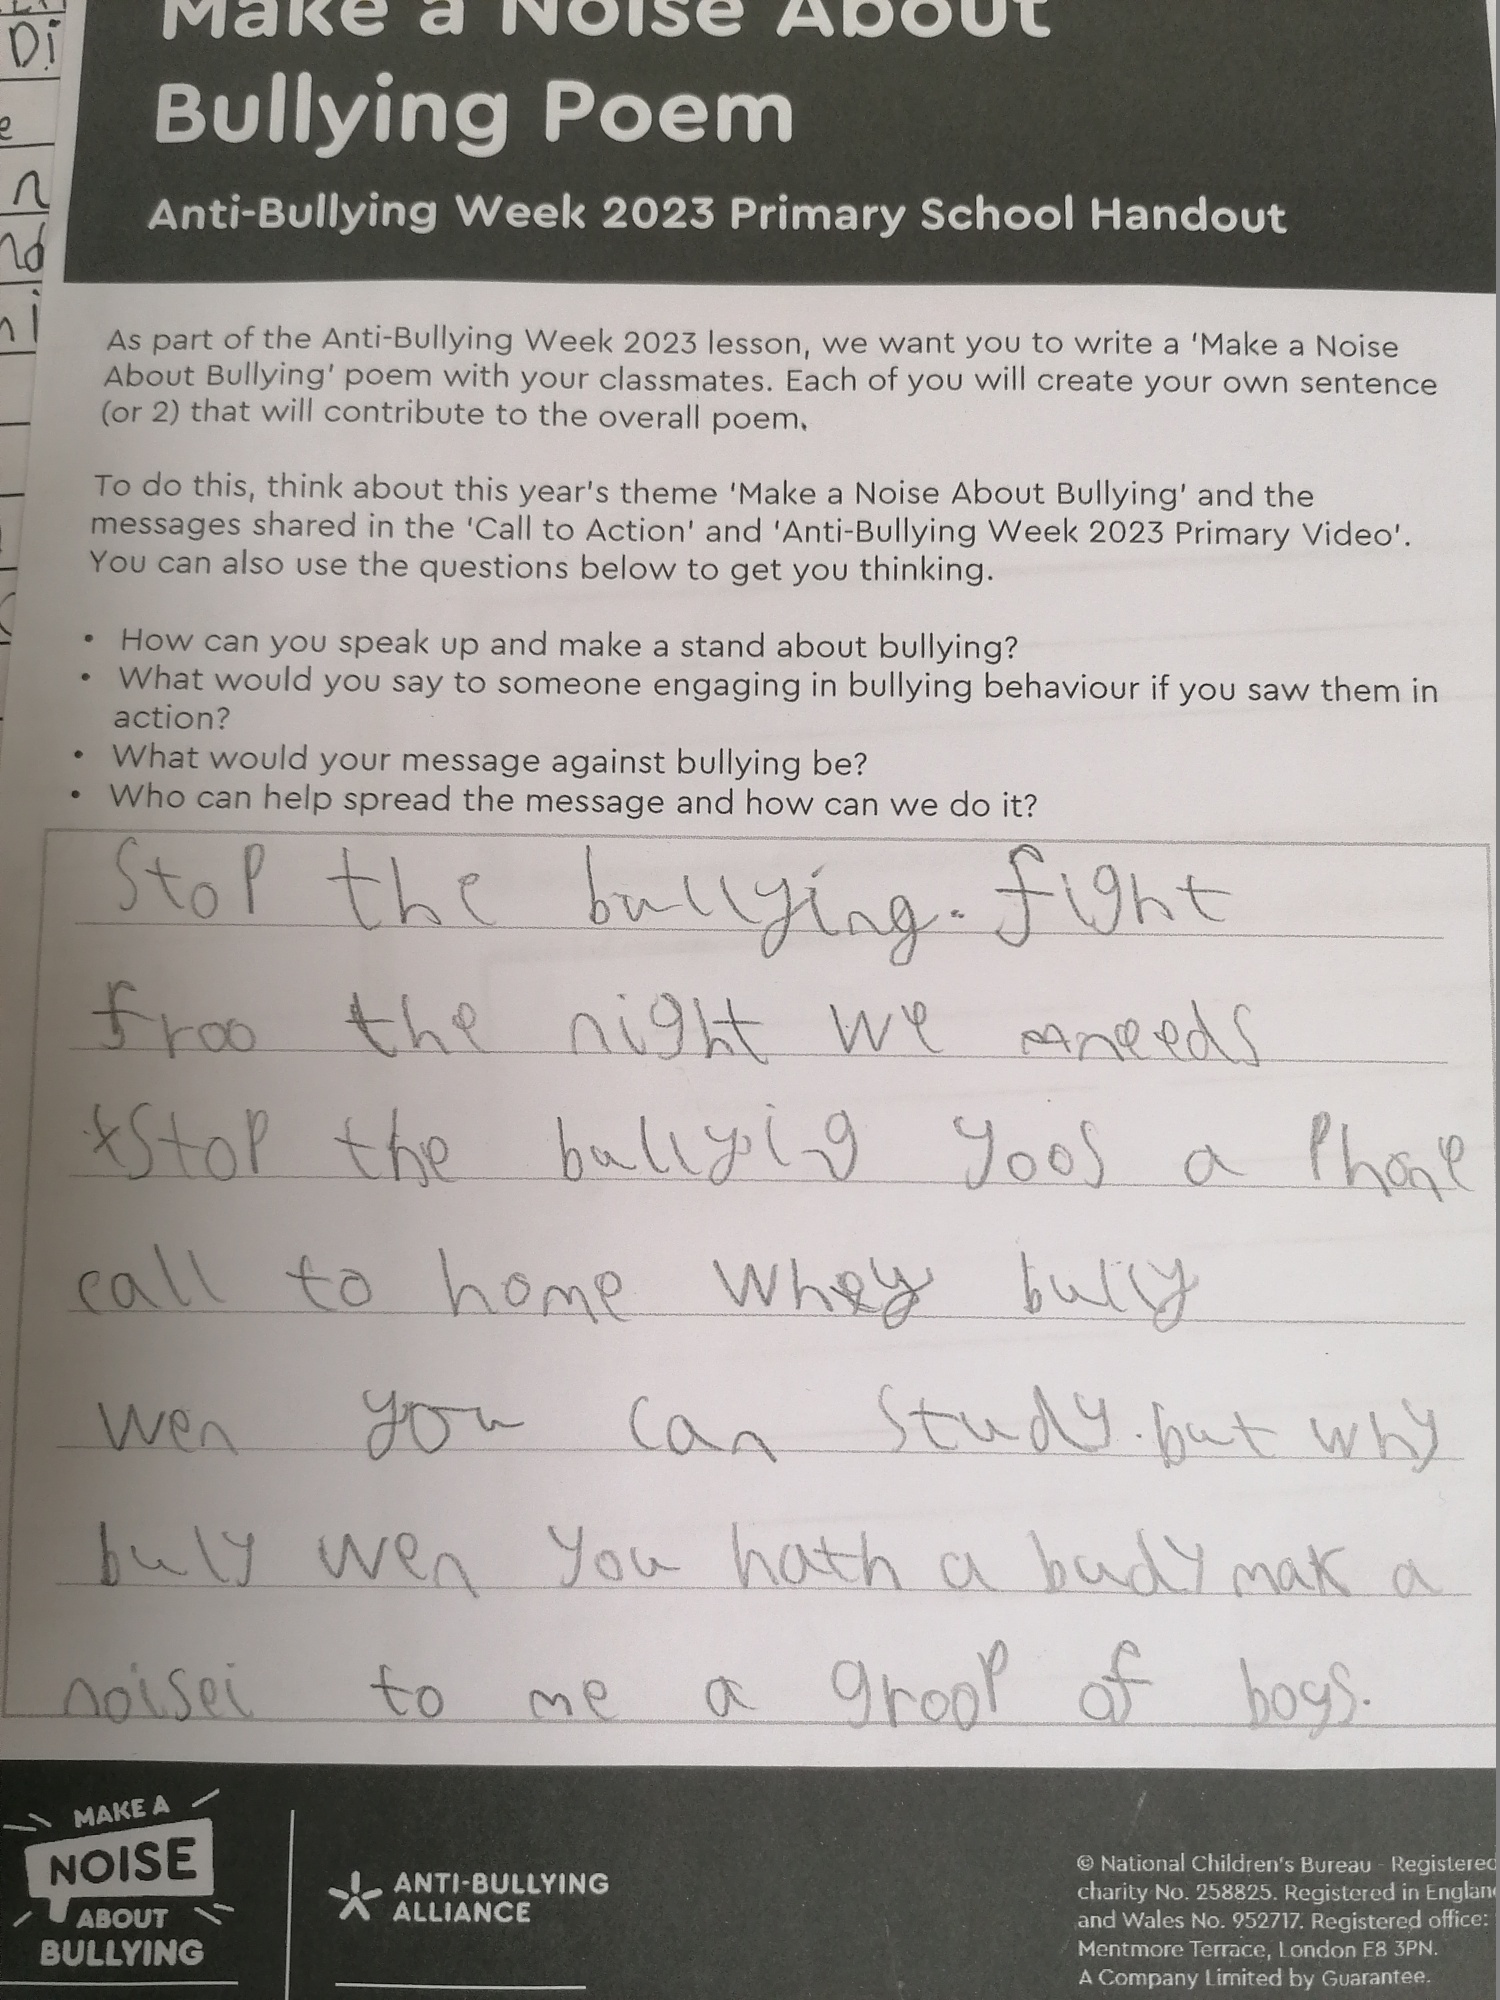 Make a Noise About
Bullying Poem
Anti-Bullying Week 2023 Primary School Handout
As part of the Anti-Bullying Week 2023 lesson, we want you to write a 'Make a Noise
About Bullying' poem with your classmates. Each of you will create your own sentence
(or 2) that will contribute to the overall poem.
To do this, think about this year's theme 'Make a Noise About Bullying' and the
messages shared in the 'Call to Action' and 'Anti-Bullying Week 2023 Primary Video'.
You can also use the questions below to get you thinking.
• How can you speak up and make a stand about bullying?
• What would you say to someone engaging in bullying behaviour if you saw them in
action?
• What would your message against bullying be?
• Who can help spread the message and how can we do it?
Stop the bullying. fight
froo the night we needs
stop the bullyig yoos a Phone
call to home whey bully
wen you can study. but why
buly wen you hath a budy mak a
noisei to me a groop of boys.
MAKE A
NOISE
ABOUT
BULLYING
ANTI-BULLYING
ALLIANCE
© National Children's Bureau - Registered
charity No. 258825. Registered in England
and Wales No. 952717. Registered office:
Mentmore Terrace, London E8 3PN.
A Company Limited by Guarantee.